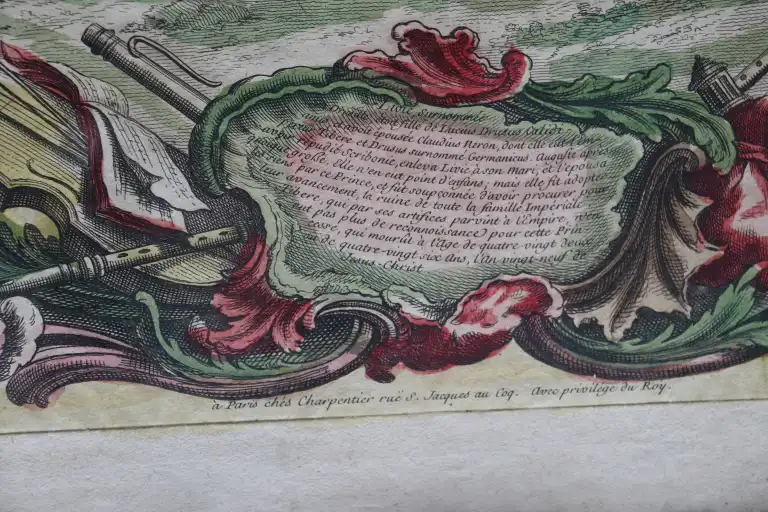 Livie, surnommée
étoit fille de Lucius Drusus Calidi
avoit épousée Claudius Neron, dont elle eut
Tibère et Drusus surnommé Germanicus. Auguste après
avoir répudié Scribonie, enleva Livie à son mari, et l'épousa
grosse. Elle n'en eut point d'enfans; mais elle fit adopter
les siens par ce Prince, et fut soupçonnée d'avoir procurer, pour
leur avancement, la ruine de toute la famille Impériale
Tibere, qui par ses artifices parvint à l'Empire, n'en
eut pas plus de reconnoissance pour cette Prin
cesse, qui mourût à l'âge de quatre-vingt deux
ou de quatre-vingt six Ans, l'An vingt-neuf de
Jesus-Christ
à Paris chés Charpentier ruë S. Jacques au Coq. Avec privilége du Roy.